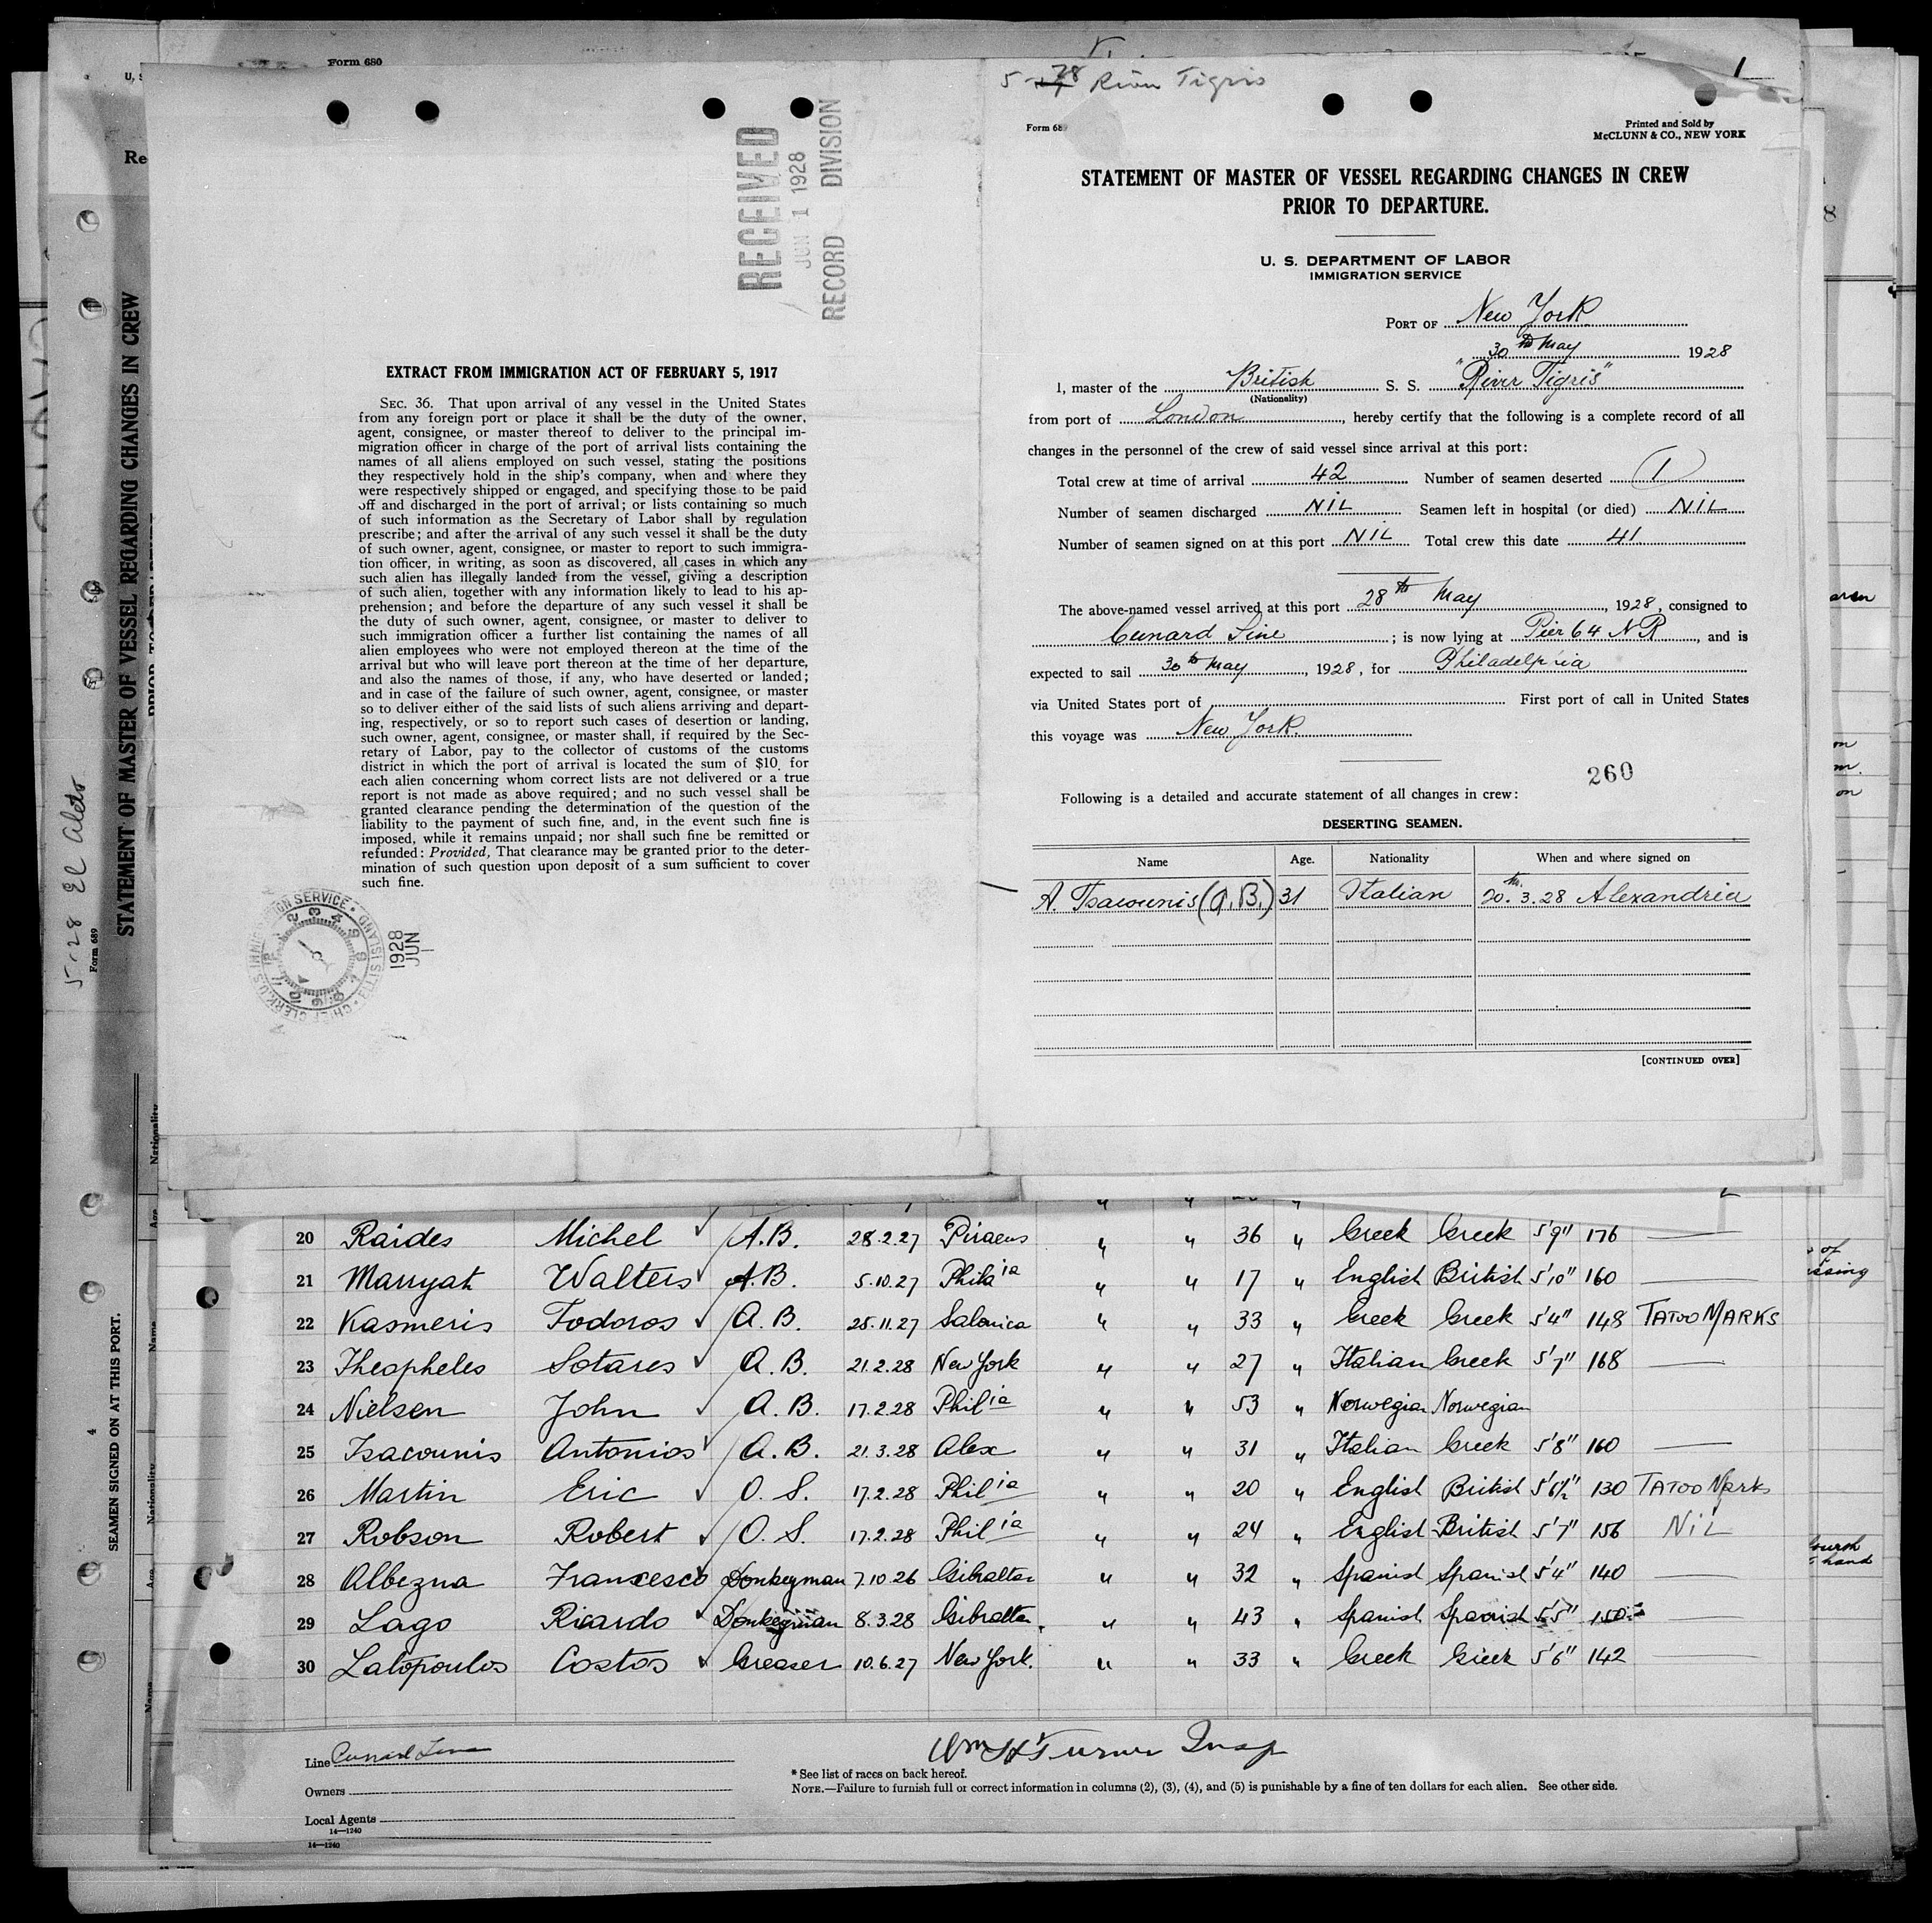 Form 680
5-28 River Tigris
1
RECEIVED
JUN 1 1928
RECORD DIVISION
EXTRACT FROM IMMIGRATION ACT OF FEBRUARY 5, 1917
SEC. 36. That upon arrival of any vessel in the United States
from any foreign port or place it shall be the duty of the owner,
agent, consignee, or master thereof to deliver to the principal im-
migration officer in charge of the port of arrival lists containing the
names of all aliens employed on such vessel, stating the positions
they respectively hold in the ship's company, when and where they
were respectively shipped or engaged, and specifying those to be paid
off and discharged in the port of arrival; or lists containing so much
of such information as the Secretary of Labor shall by regulation
prescribe; and after the arrival of any such vessel it shall be the duty
of such owner, agent, consignee, or master to report to such immigra-
tion officer, in writing, as soon as discovered, all cases in which any
such alien has illegally landed from the vessel, giving a description
of such alien, together with any information likely to lead to his ap-
prehension; and before the departure of any such vessel it shall be
the duty of such owner, agent, consignee, or master to deliver to
such immigration officer a further list containing the names of all
alien employees who were not employed thereon at the time of the
arrival but who will leave port thereon at the time of her departure,
and also the names of those, if any, who have deserted or landed;
and in case of the failure of such owner, agent, consignee, or master
so to deliver either of the said lists of such aliens arriving and depart-
ing, respectively, or so to report such cases of desertion or landing,
such owner, agent, consignee, or master shall, if required by the Sec-
retary of Labor, pay to the collector of customs of the customs
district in which the port of arrival is located the sum of $10 for
each alien concerning whom correct lists are not delivered or a true
report is not made as above required; and no such vessel shall be
granted clearance pending the determination of the question of the
liability to the payment of such fine, and, in the event such fine is
imposed, while it remains unpaid; nor shall such fine be remitted or
refunded: Provided, That clearance may be granted prior to the deter-
mination of such question upon deposit of a sum sufficient to cover
such fine.
1928
JUN
Form 689
Printed and Sold by
McCLUNN & CO., NEW YORK
STATEMENT OF MASTER OF VESSEL REGARDING CHANGES IN CREW
PRIOR TO DEPARTURE.
U. S. DEPARTMENT OF LABOR
IMMIGRATION SERVICE
PORT OF New York
30th May 1928
I, master of the British S. S. "River Tigris"
(Nationality)
from port of London, hereby certify that the following is a complete record of all
changes in the personnel of the crew of said vessel since arrival at this port:
Total crew at time of arrival 42 Number of seamen deserted 1
Number of seamen discharged NIL Seamen left in hospital (or died) NIL
Number of seamen signed on at this port NIL Total crew this date 41
The above-named vessel arrived at this port 28th May, 1928, consigned to
Cunard Line; is now lying at Pier 64 NR, and is
expected to sail 30th May, 1928, for Philadelphia
via United States port of First port of call in United States
this voyage was New York.
260
Following is a detailed and accurate statement of all changes in crew:
DESERTING SEAMEN.
Name Age. Nationality When and where signed on
A. Tsacounis (A.B.) 31 Italian 20th. 3.28 Alexandria
[CONTINUED OVER]
5-28 El Aleto
Form 689
STATEMENT OF MASTER OF VESSEL REGARDING CHANGES IN CREW
4
SEAMEN SIGNED ON AT THIS PORT.
Name
Age
Nationality
20 Raides Michel A.B. 28.2.27 Piraeus " " 36 " Greek Greek 5'9" 176 —
21 Marryat Walters A.B. 5.10.27 Philaia " " 17 " English British 5'10" 160 —
22 Kasmeris Todoros A.B. 25.11.27 Salonica " " 33 " Greek Greek 5'4" 148 TATOO MARKS
23 Theopheles Sotares A.B. 21.2.28 New York " " 27 " Italian Greek 5'7" 168 —
24 Nielsen John A.B. 17.2.28 Philia " " 53 " Norwegian Norwegian
25 Tsacounis Antonios A.B. 21.3.28 Alex " " 31 " Italian Greek 5'8" 160 —
26 Martin Eric O.S. 17.2.28 Philia " " 20 " English British 5'6½" 130 TATOO Marks
27 Robson Robert O.S. 17.2.28 Philia " " 24 " English British 5'7" 156 NiL
28 Albezna Francesco Donkeyman 7.10.26 Gibraltar " " 32 " Spanish Spanish 5'4" 140 —
29 Lago Ricardo Donkeyman 8.3.28 Gibraltar " " 43 " Spanish Spanish 5'5" 150
30 Latopoulos Costos Greaser 10.6.27 New York. " " 33 " Greek Greek 5'6" 142 —
Line Cunard Line
Owners
Local Agents
14—1240
14—1240
Wm H Turner Insp
* See list of races on back hereof.
NOTE.—Failure to furnish full or correct information in columns (2), (3), (4), and (5) is punishable by a fine of ten dollars for each alien. See other side.